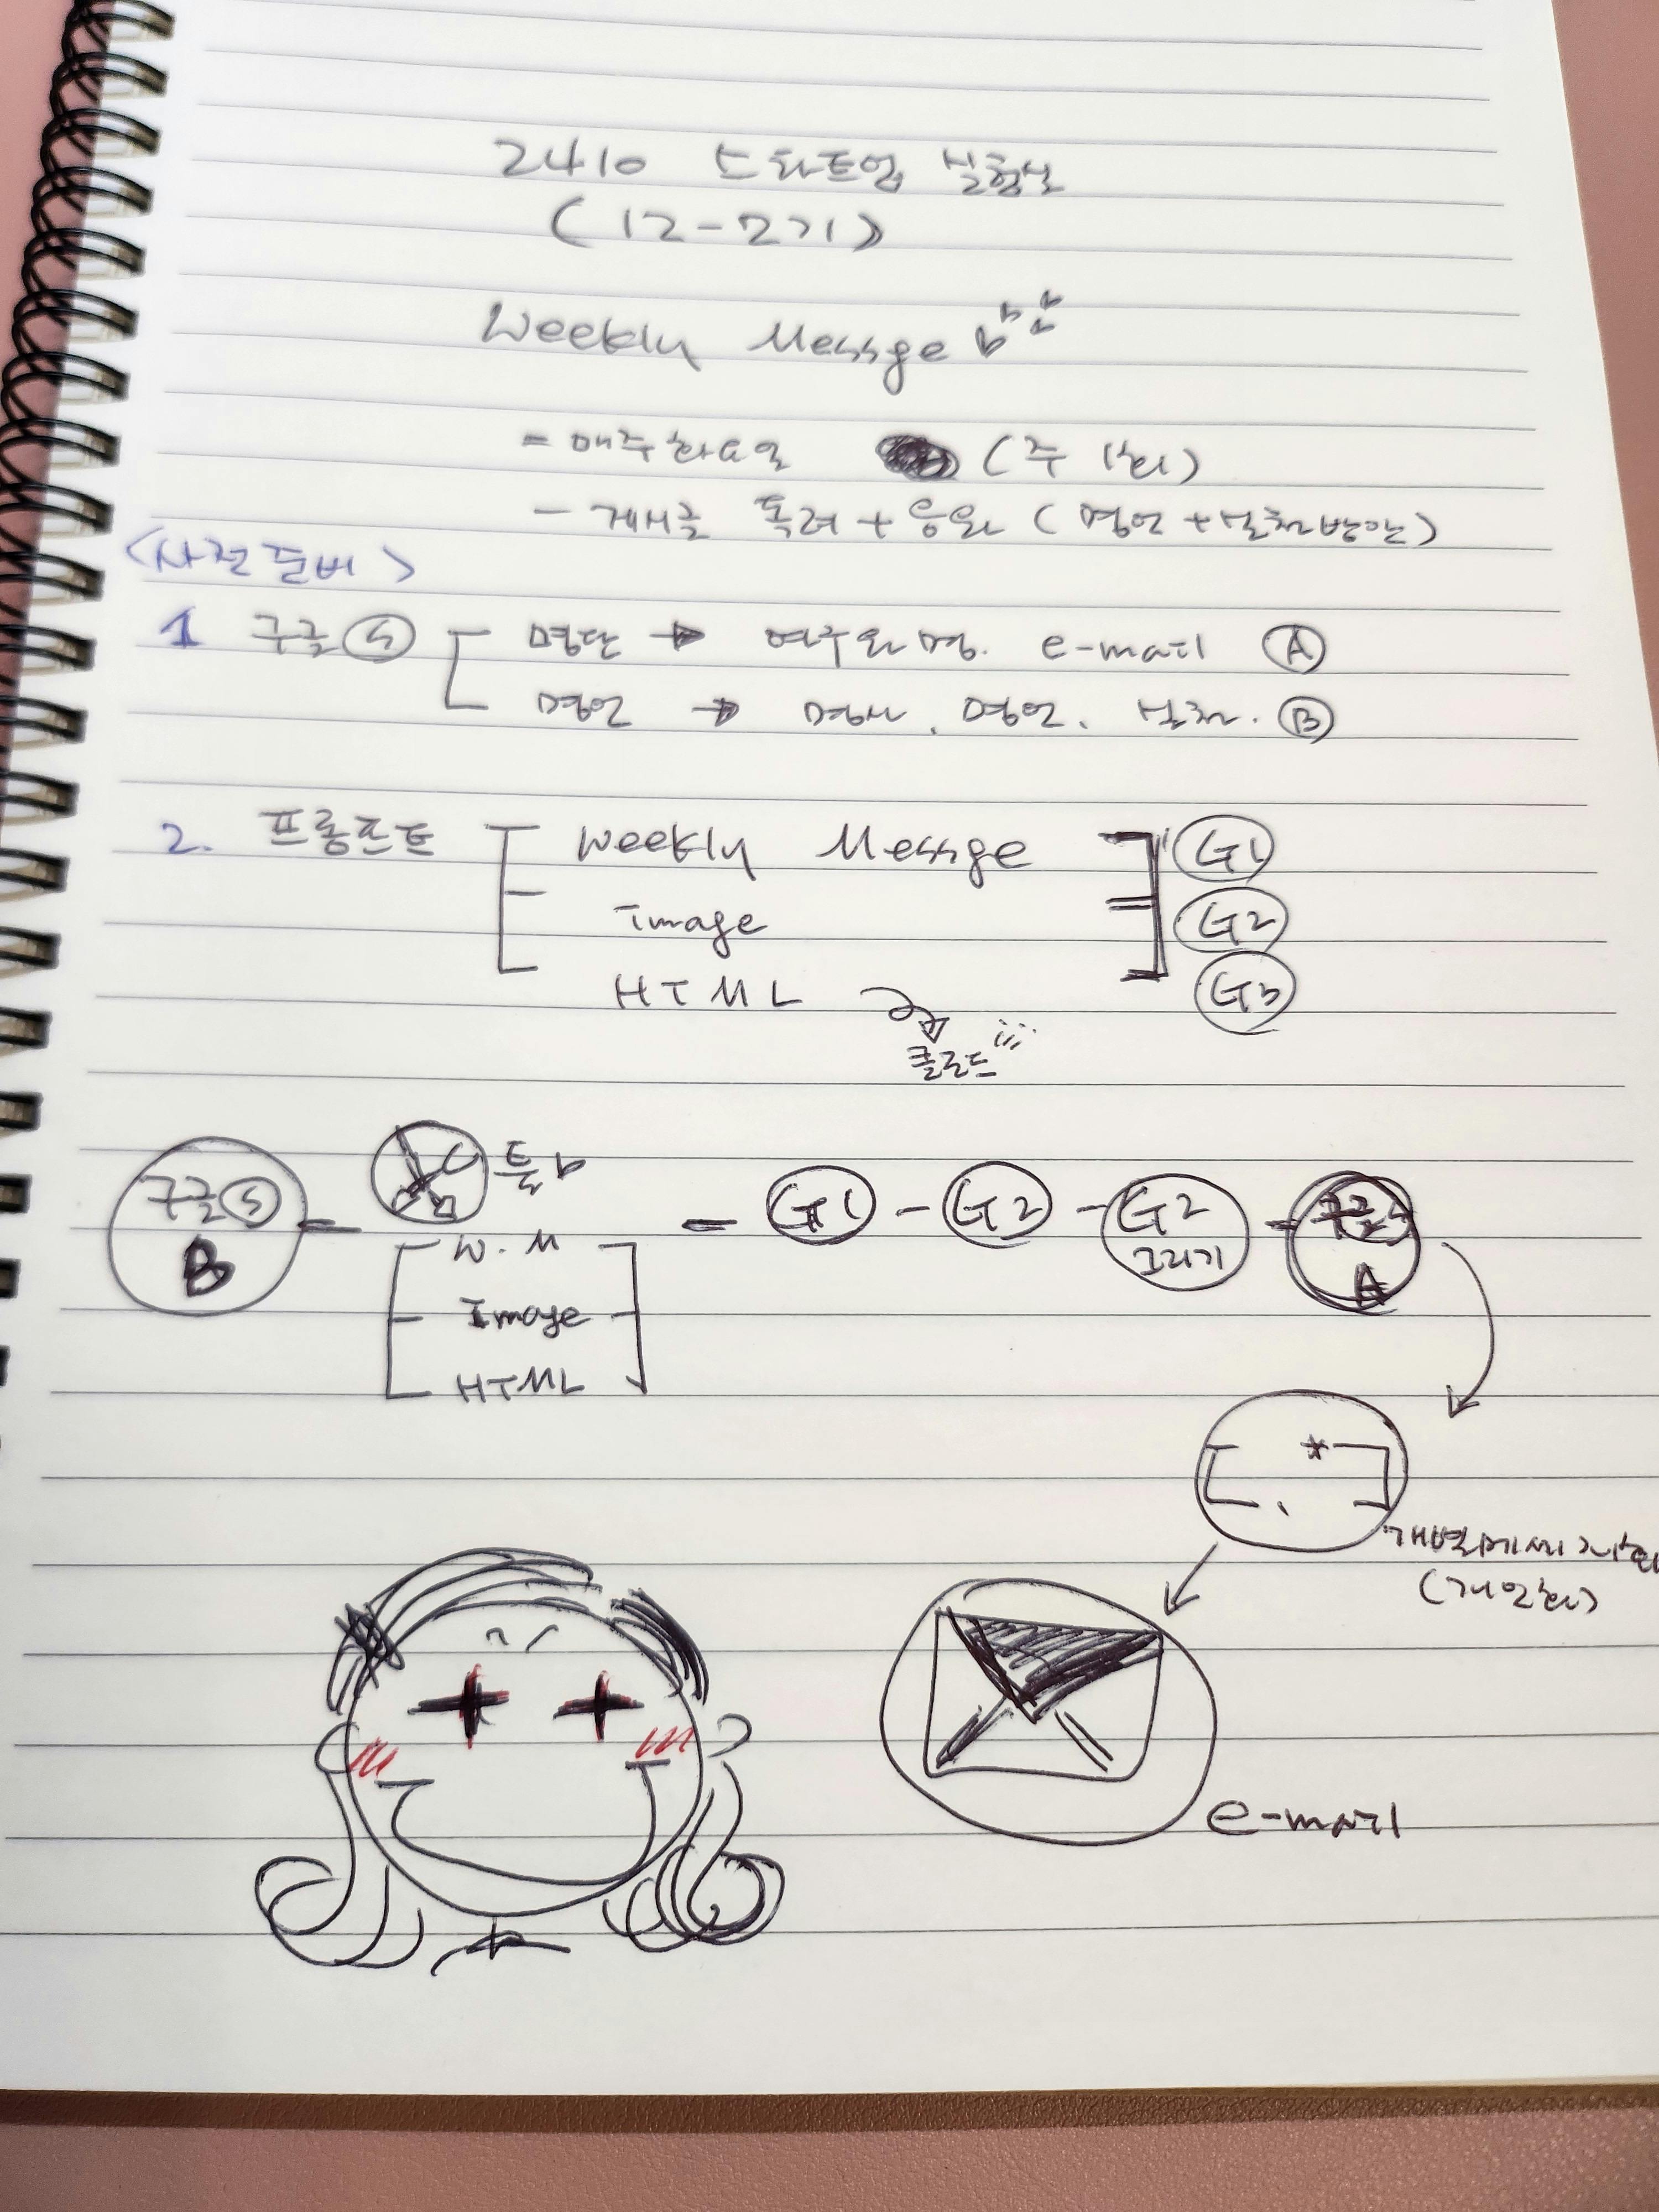 2410 스타트업 실험실
(12-2기)
Weekly Messge
- 매주 화요일 (주 1회)
- 게시글 독려 + 응원 (명언 + 실천방안)
<사전 준비>
1 구글 S 명단 → e-mail A
명언 → 명사, 명언, 실천. B
2. 프롬프트 Weekly Messge G1
Image G2
HTML G3
클로드
구글 S B - 툴 - G1 - G2 - G2 그리기 - 구글 S A
W.M
Image
HTML
[, *]
개별메세지
(개인화)
e-mail